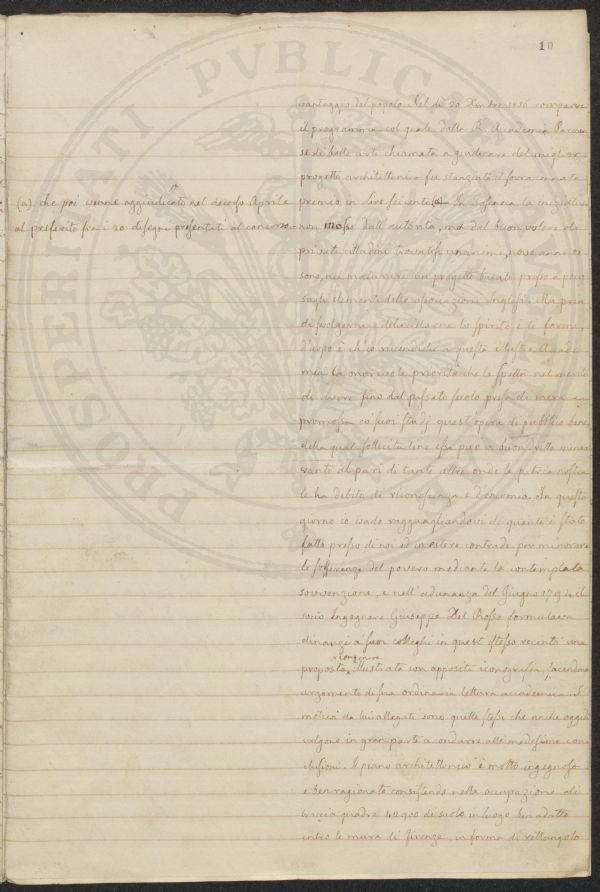 10
vantaggio del popolo Nel dì 20 Xmbre 1856 comparve
il programma col quale dalla R. Accademia Parmen-
se di belle arti chiamata a giudicare del miglior
progetto architettonico fu stanziato il sovraccennato
premio in Lire seicento (a) In la iniziativa
(a) che poi venne aggiudicato nel decorso Aprile
al preferito fra i 20 disegni presentati al concorso.
non mosse dall'autorità, ma dal buon volere di
privati cittadini trovatisi unanimi, nove anni or
sono, nel maturare un progetto basato presso a poco
sugli elementi delle associazioni Inglesi. Ma pria
di svolgerne e delucidarne lo spirito e le forme,
d'uopo è ch'io rivendichi a questa illustre Accade-
mia la onorevole priorità che le spetta nel merito
di avere fino dal passato secolo presa di mira e
promossa co' suoi studj quest'opera di pubblico bene,
della qual sollecitudine essa può a buon dritto menar
vanto al pari di tante altre onde la patria nostra
le ha debito di riconoscenza e d'encomio. In questo
giorno io vado ragguagliandovi di quanto è stato
fatto presso di noi ed in estere contrade per minorare
le sofferenze del povero mediante la contemplata
sovvenzione, e nell'adunanza del Giugno 1794 il
socio Ingegnere Giuseppe Del Rosso formulava
dinanzi a' suoi colleghi in quest'istesso recinto una
proposta consimile illustrata con apposita iconografia, facendone
argomento di sua ordinaria lettura accademica. I
motivi da lui allegati sono quelli stessi che anche oggidì
valgono in gran parte a condurre alle medesime con-
clusioni. Il piano architettonico è molto ingegnoso
e ben ragionato consistendo nella occupazione di
braccia quadre 42900 di suolo in luogo ben adatto
entro le mura di Firenze, in forma di rettangolo
PROSPERITATI PUBLICAE